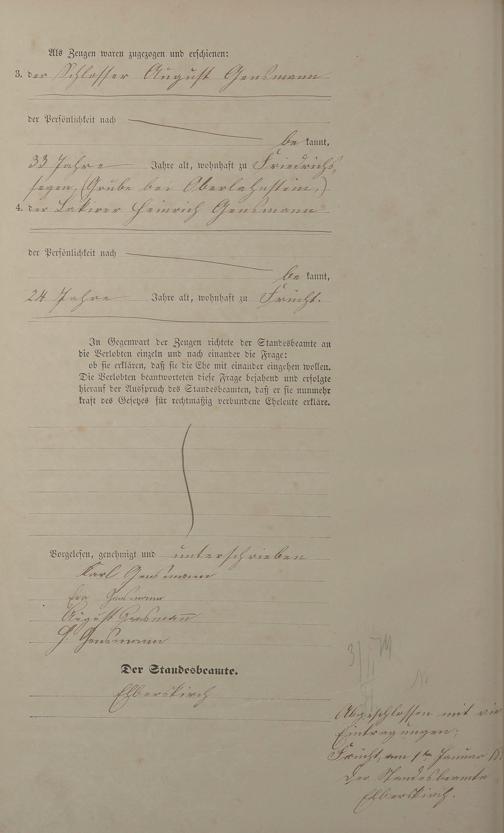 Als Zeugen waren zugezogen und erschienen:
3. der Schlosser August Gensmann
der Persönlichkeit nach
be kannt,
33 Jahre Jahre alt, wohnhaft zu Friedrichs
segen, (Grube bei Oberlahnstein,)
4. der Lakirer Heinrich Gensmann
der Persönlichkeit nach
be kannt,
24 Jahre Jahre alt, wohnhaft zu Frücht.
In Gegenwart der Zeugen richtete der Standesbeamte an
die Verlobten einzeln und nach einander die Frage:
ob sie erklären, daß sie die Ehe mit einander eingehen wollen.
Die Verlobten beantworteten diese Frage bejahend und erfolgte
hierauf der Ausspruch des Standesbeamten, daß er sie nunmehr
kraft des Gesetzes für rechtmäßig verbundene Eheleute erkläre.
Vorgelesen, genehmigt und unterschrieben
Karl Gensmann
Gensmann
August Gensmann
H Gensmann
Der Standesbeamte.
Elberskirch
Abgeschlossen mit vier
Eintragungen:
Frücht, am 1ten Januar
Der Standesbeamte
Elberskirch.